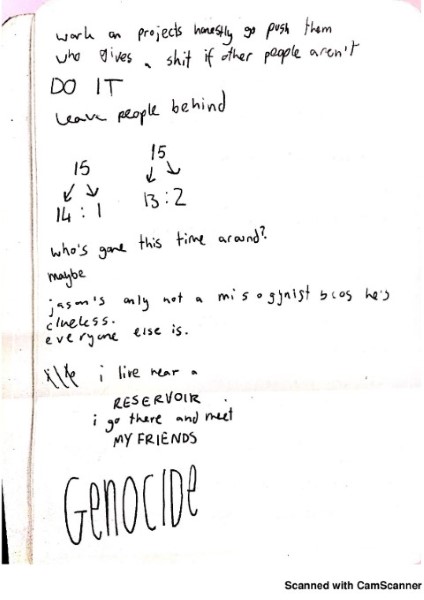 work on projects honestly go push them
who gives a shit if other people aren't
DO IT
Leave people behind
15 15
14 : 1 13 : 2
who's gone this time around?
maybe
jason's only not a misogynist bcos he's
clueless.
everyone else is.
i live near a
RESERVOIR
i go there and meet
MY FRIENDS
GENOCIDE
Scanned with CamScanner